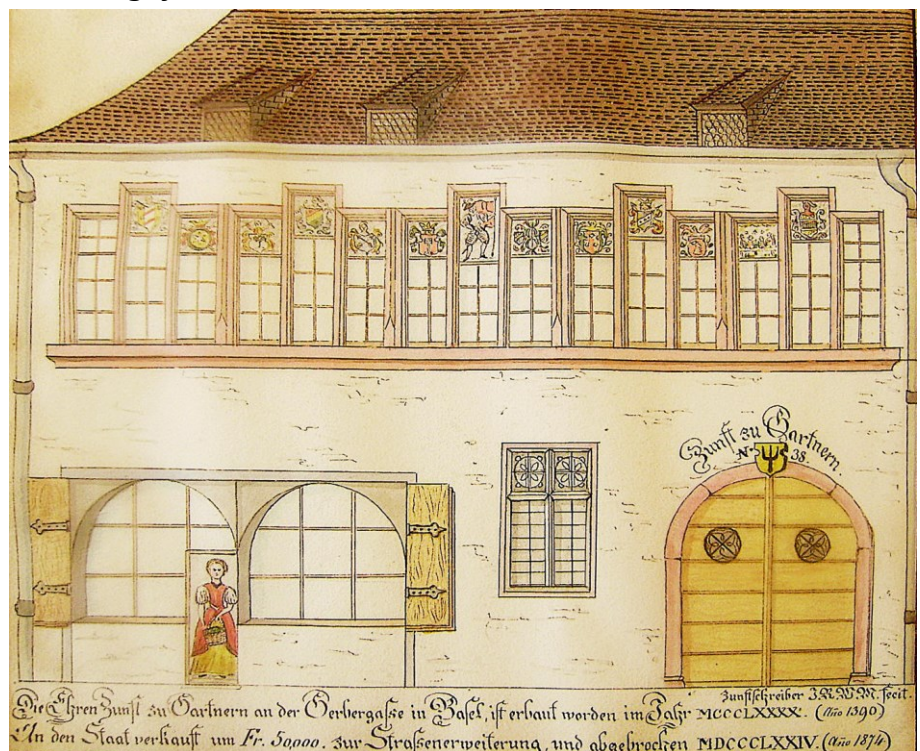 Zunft zu Gartnern.
N° 38.
Zunftschreiber J.R.V.M. fecit.
Die Ehren Zunft zu Gartnern an der Gerbergasse in Basel, ist erbaut worden im Jahr MCCCLXXXX. (Año 1390)
An den Staat verkauft um Fr. 50,000. zur Straßenerweiterung, und abgebrochen MDCCCLXXIV. (Año 1874)